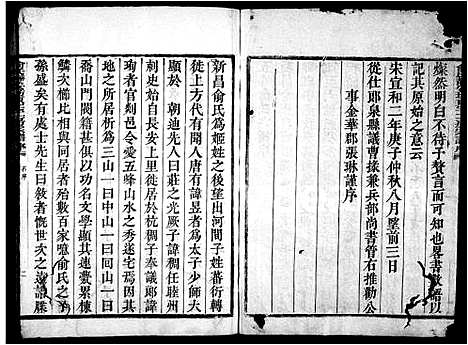 燦然明白不待予贅言而可知也畧書數語以
記其原始之意云
宋宣和二年庚子仲秋八月望前三日
從仕郎泉縣議曹掾兼兵部尚書管右推勸公
事金華郡張琳謹序
新昌俞氏為姬姓之後望出河間子姓蕃衍轉
徙每代有聞人唐有諱昌者為太子少師夫
刺史始自青邑人曰莊之光厥子諱稠任睦州
朝迪先杭稠子奉議郎諱
珣者官剡邑令愛五峰山水之秀遂宅焉因其
地之所居析為三一曰中山一曰囘山一曰
喬山門閥日以功名文學顯其連甍累棟
鱗次櫛比與同居者殆數百家噫俞氏之
孫盛矣有處士先生曰者慨世次之遠譜牒